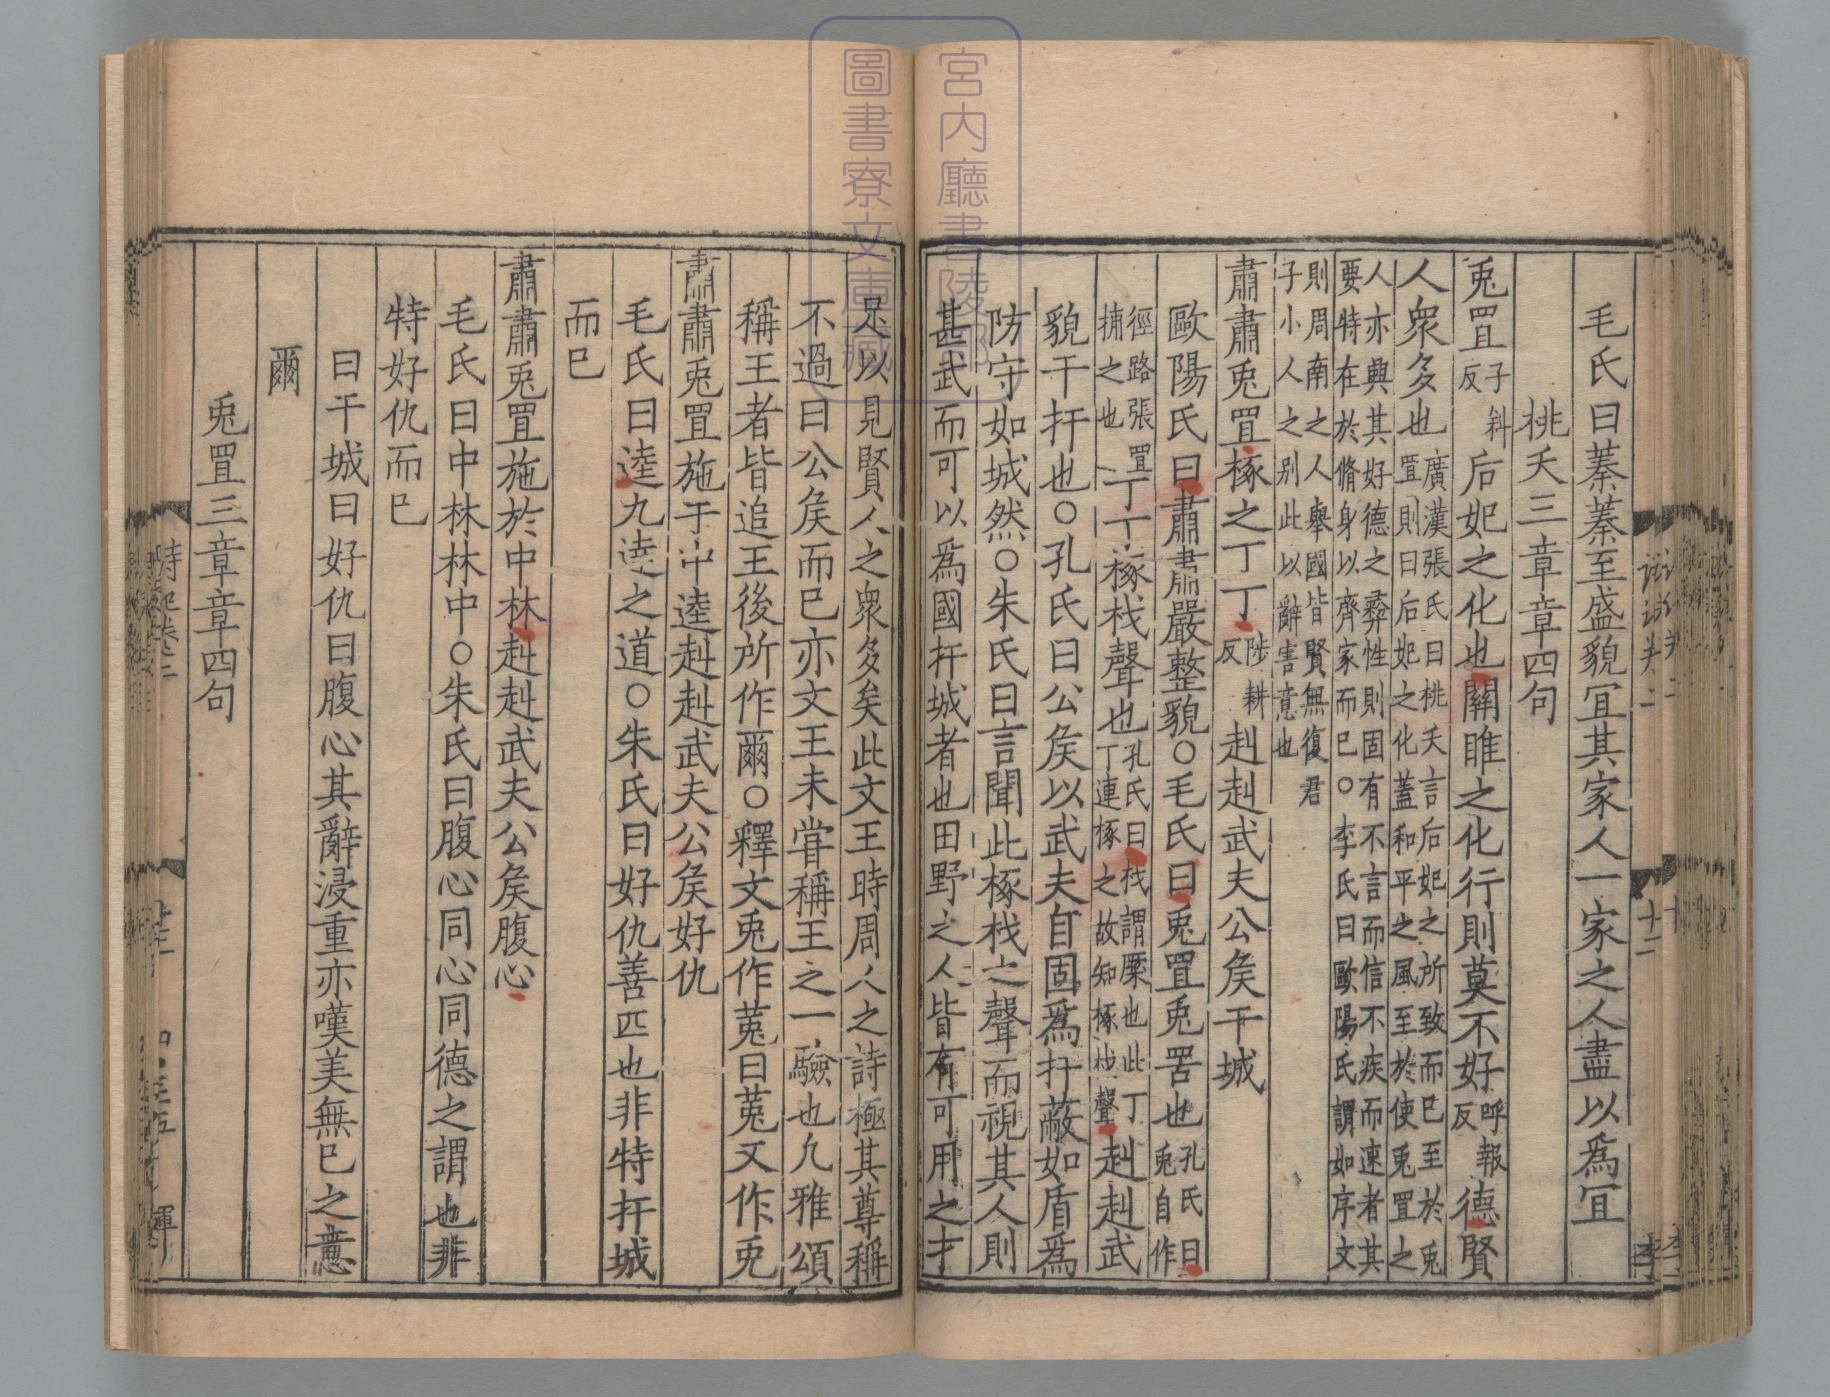 毛氏曰蓁蓁至盛貌宜其家人一家之人盡以爲宜
桃夭三章章四句
兎罝子斜反后妃之化也關雎之化行則莫不好呼報反德賢
人衆多也廣漢張氏曰桃夭言后妃之所致而已至於兎罝則曰后妃之化蓋和平之風至於使兎罝之
人亦興其好德之彝性則固有不言而信不疾而速者其要特在於脩身以齊家而已○李氏曰歐陽氏謂如序文
則周南之人舉國皆賢無復君子小人之别此以辭害意也
肅肅兎罝椓之丁丁陟耕反赳赳武夫公矦干城
歐陽氏曰肅肅嚴整貌○毛氏曰兎罝兎罟也孔氏曰兎自作
徑路張罝捕之也丁丁椓杙聲也孔氏曰杙謂橜也此丁丁連椓之故知椓杙聲赳赳武
貌干扞也○孔氏曰公矦以武夫自固爲扞蔽如盾爲
防守如城然○朱氏曰言聞此椓杙之聲而視其人則
甚武而可以爲國扞城者也田野之人皆有可用之才
足以見賢人之衆多矣此文王時周人之詩極其尊稱
不過曰公矦而已亦文王未甞稱王之一驗也凡雅頌
稱王者皆追王後所作爾○釋文兎作菟曰菟又作兎
肅肅兎罝施于中逵赳赳武夫公矦好仇
毛氏曰逵九逵之道○朱氏曰好仇善匹也非特扞城
而已
肅肅兎罝施於中林赳赳武夫公矦腹心
毛氏曰中林林中○朱氏曰腹心同心同德之謂也非
特好仇而已
曰干城曰好仇曰腹心其辭浸重亦嘆美無已之意
爾
兎罝三章章四句
宮内廳書陵部
圖書寮文庫藏